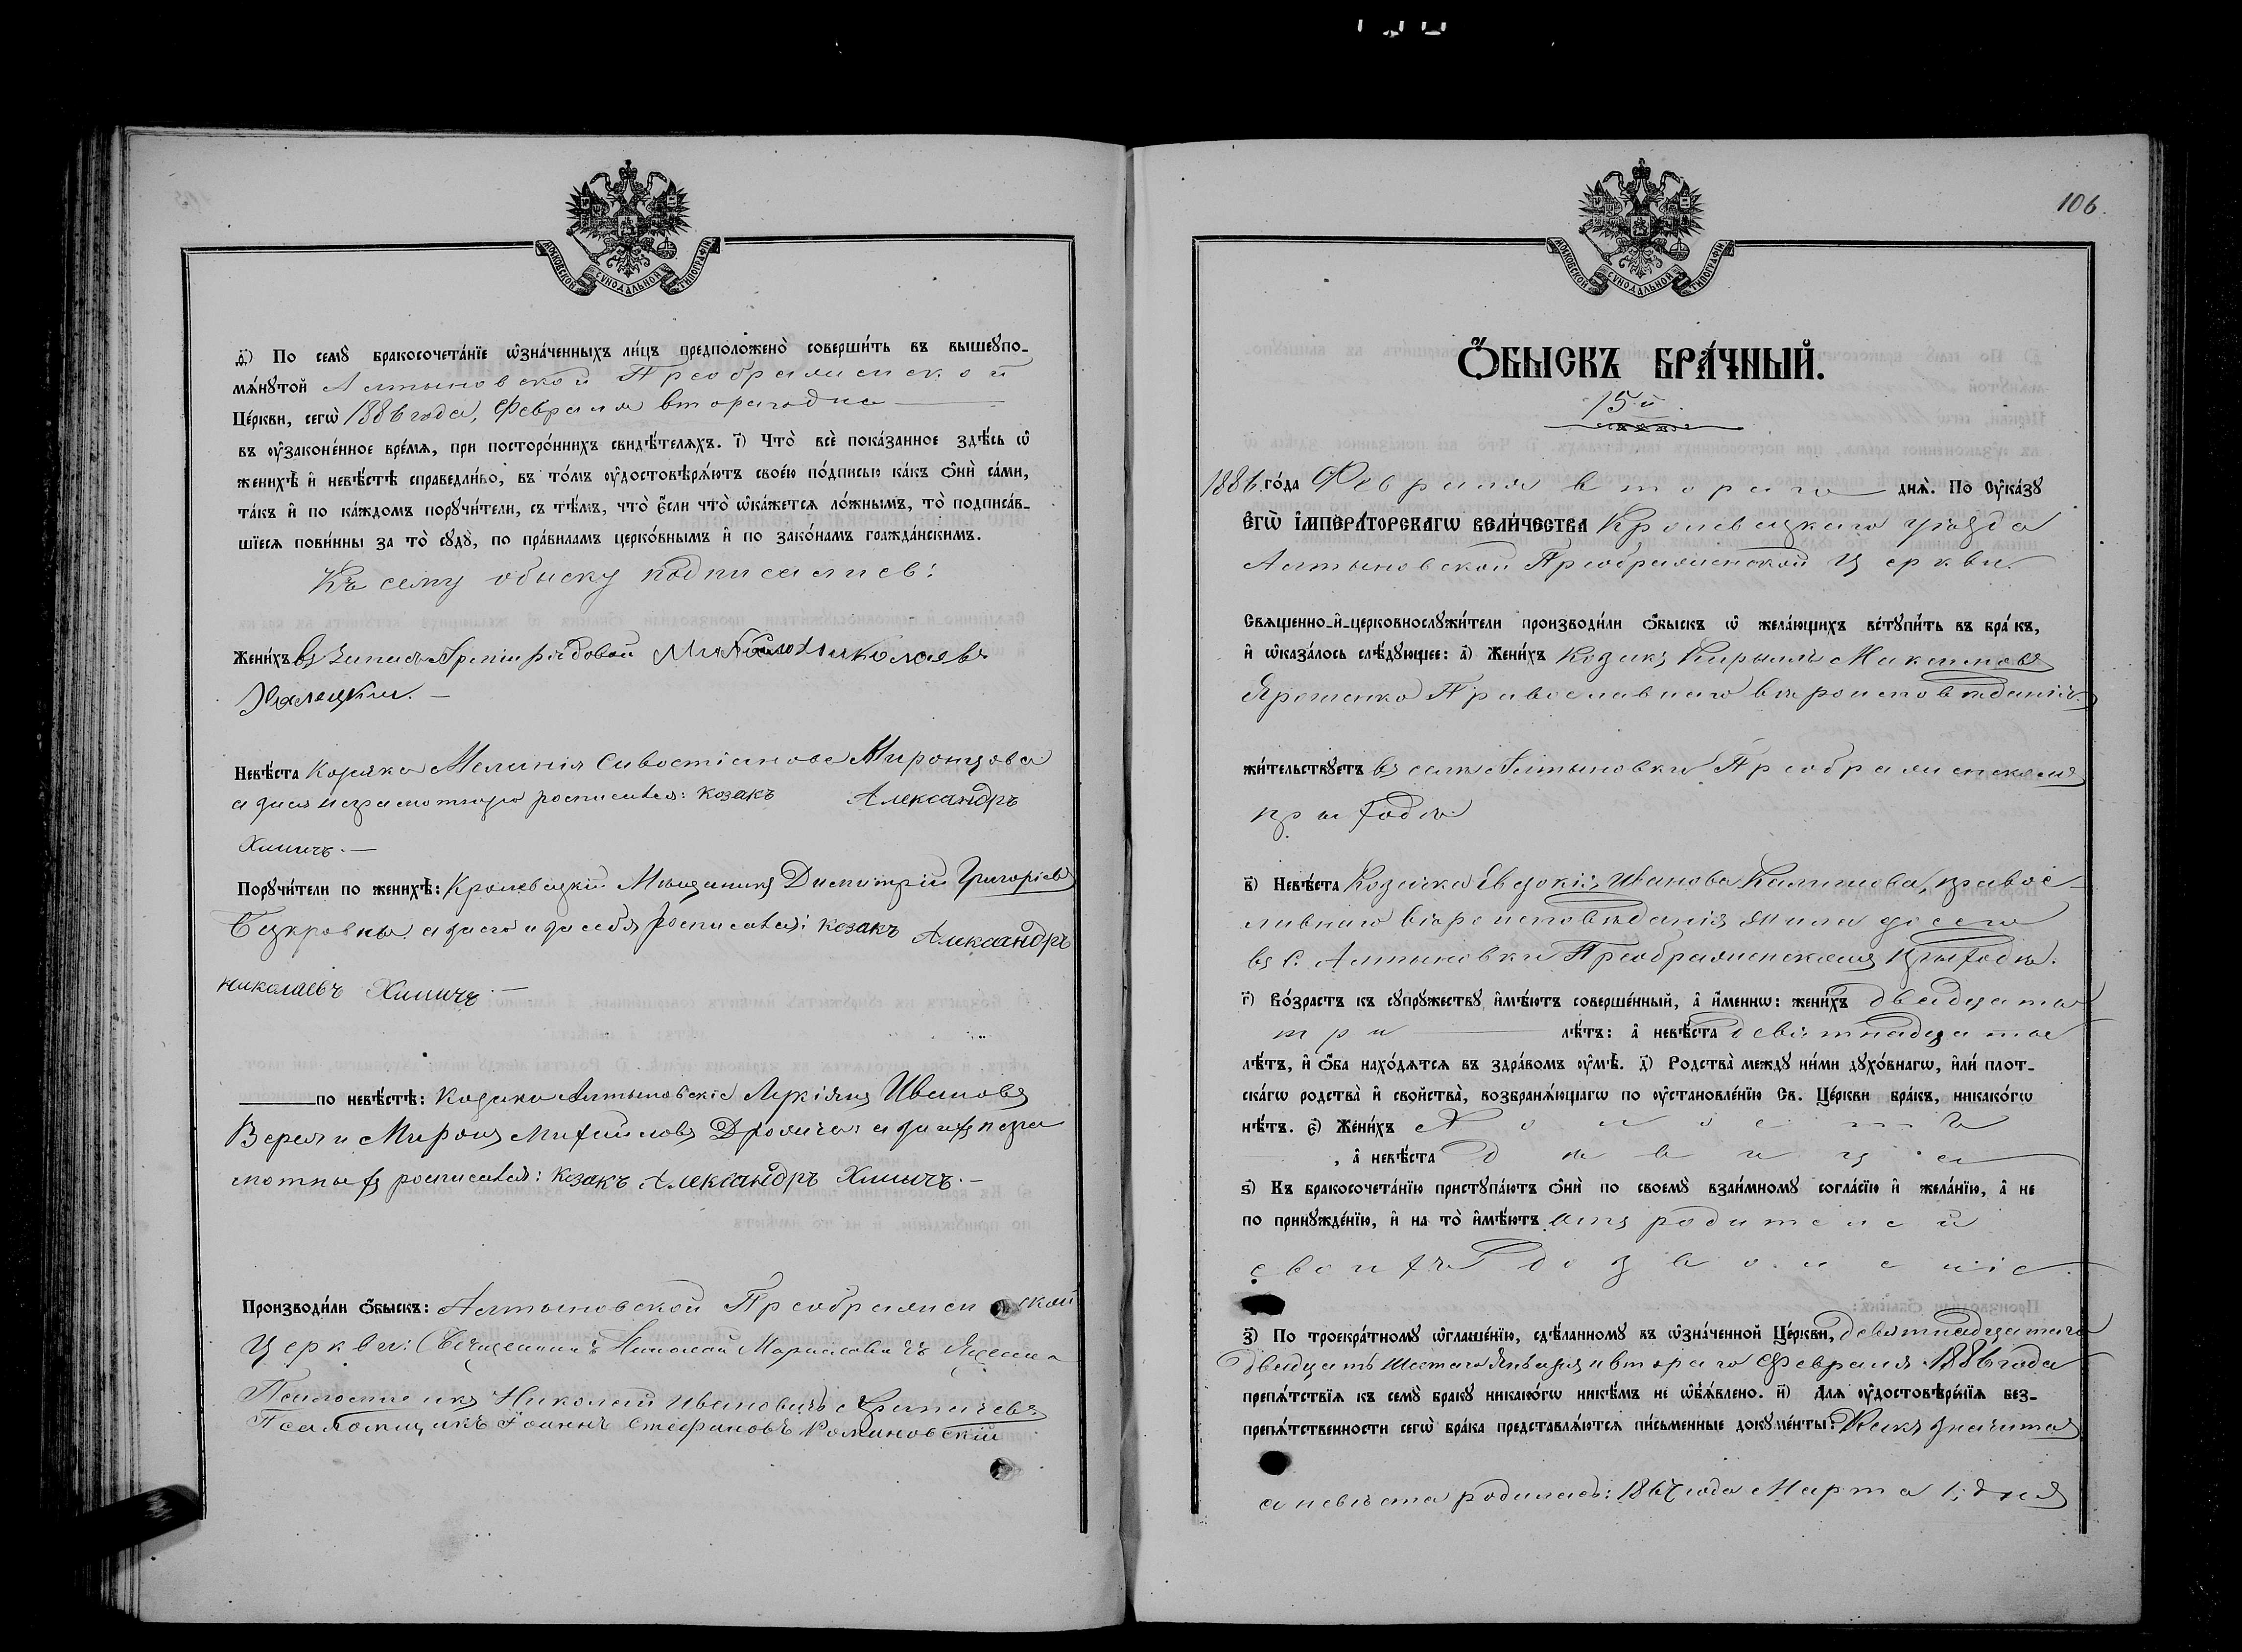 МОСКОВСКОЙ СѴНОДАЛЬНОЙ ТИПОГРАФІИ
д҃) По семꙋ̀ бракосочета́нїе ѡ҆зна́ченныхъ ли́цъ предположено̀ соверши́ть въ вышеꙋпо-
мѧ́нꙋтой Алтыновской Преображенской
Це́ркви, сегѡ̀ 1886 года, Февраля втораго дня
въ ᲂу҆законе́нное вре́мѧ, при посторо́ннихъ свидѣ́телѧхъ. і҃) Что̀ всѐ пока́занное здѣ́сь ѡ҆
женихѣ̀ и҆ невѣ́стѣ справедли́во, въ то́мъ ᲂу҆достовѣрѧ́ютъ свое́ю по́дписью ка́къ ѻ҆нѝ са́ми,
та́къ и҆ по ка́ждомъ порꙋчи́тели, съ тѣ́мъ, что̀ є҆́сли что̀ ѡ҆ка́жетсѧ ло́жнымъ, то̀ подписа́в-
шїесѧ пови́нны за то̀ сꙋдꙋ̀, по пра́виламъ церко́внымъ и҆ по зако́намъ гражда́нскимъ.
Къ сему обыску подписались:
Жени́хъ
Невѣ́ста Козачка Меланія Сивостіанова Миронцова
а за ея неграмотную росписался: козакъ Александръ
Химичъ.—
Порꙋчи́тели по женихѣ̀: Кролевецкій Мещанинъ Димитрій Григоріевъ
а за его и за себя росписался: козакъ Александръ
Николаевъ Химичъ.—
по невѣ́стѣ: Козаки Алтыновскіе Лукіянъ Ивановъ
и Миронъ Михайловъ а за ихъ негра
мотныхъ росписался: козакъ Александръ Химичъ.—
Производи́ли ѻ҆́быскъ: Алтыновской Преображенской
Церкви: Священникъ Николай
Псаломщикъ Николай Ивановичъ
Псаломщикъ Іоаннъ Стефановъ Романовскій
106.
МОСКОВСКОЙ СѴНОДАЛЬНОЙ ТИПОГРАФІИ
Ѻ҆́БЫСКЪ БРА́ЧНЫЙ.
15й.
1886 го́да Февраля втораго днѧ̀. По Оу҆ка́зꙋ
Є҆гѡ̀ І҆мпера́торскагѡ вели́чества Кролевецкаго уѣзда
Алтыновской Преображенской Церкви
Свѧщенно-и҆-церковнослꙋжи́тели производи́ли ѻ҆́быскъ ѡ҆ жела́ющихъ встꙋпи́ть въ бра́къ,
и҆ ѡ҆каза́лось слѣ́дꙋющее: а҃) Жени́хъ Козакъ Кирыллъ Максимовъ
Ярошенко Православнаго вѣроисповѣданія
жи́тельствꙋетъ въ селѣ Алтыновки Преображенскомъ
приходѣ
в҃) Невѣ́ста Козачка Евдокія Иванова Калитова, правос-
лавнаго вѣроисповѣданія жила до сего
въ с. Алтыновки Преображенскомъ приходѣ.
г҃) Во́зрастъ къ сꙋпрꙋ́жествꙋ и҆мѣ́ютъ соверше́нный, а҆ и҆́менно: жени́хъ двадцать
три лѣ́тъ: а҆ невѣ́ста девятнадцать
лѣ́тъ, и҆ ѻ҆́ба нахо́дѧтсѧ въ здра́вомъ ᲂу҆мѣ̀. д҃) Родства̀ междꙋ ни́ми дꙋхо́внагѡ, и҆лѝ плот-
ска́гѡ родства̀ и҆ сво́йства̀, возбранѧ́ющагѡ по ᲂу҆становле́нїю Св. Це́ркви бра́къ, никако́гѡ
нѣ́тъ. є҃) Жени́хъ холостъ
, а҆ невѣ́ста дѣвица
ѕ҃) Къ бракосочета́нїю пристꙋпа́ютъ ѻ҆нѝ по своемꙋ̀ взаи́мномꙋ согла́сїю и҆ жела́нїю, а҆ не
по принꙋжде́нїю, и҆ на то̀ и҆мѣ́ютъ отъ родителей
своихъ дозволеніе.
з҃) По троекра́тномꙋ ѡ҆глаше́нїю, сдѣ́ланномꙋ въ ѡ҆зна́ченной Це́ркви, девятнадцатаго
двадцать шестаго Января и втораго Февраля 1886 года
препѧ́тствїѧ къ семꙋ̀ бракꙋ никако́гѡ никѣ́мъ не ѡ҆б̾ѧ́влено. и҃) Длѧ ᲂу҆достовѣре́нїѧ без-
препѧ́тственности сегѡ̀ бра́ка представлѧ́ютсѧ пи́сьменные докꙋме́нты: Какъ значится
а невѣста родилась: 1867 года Марта 1; дня